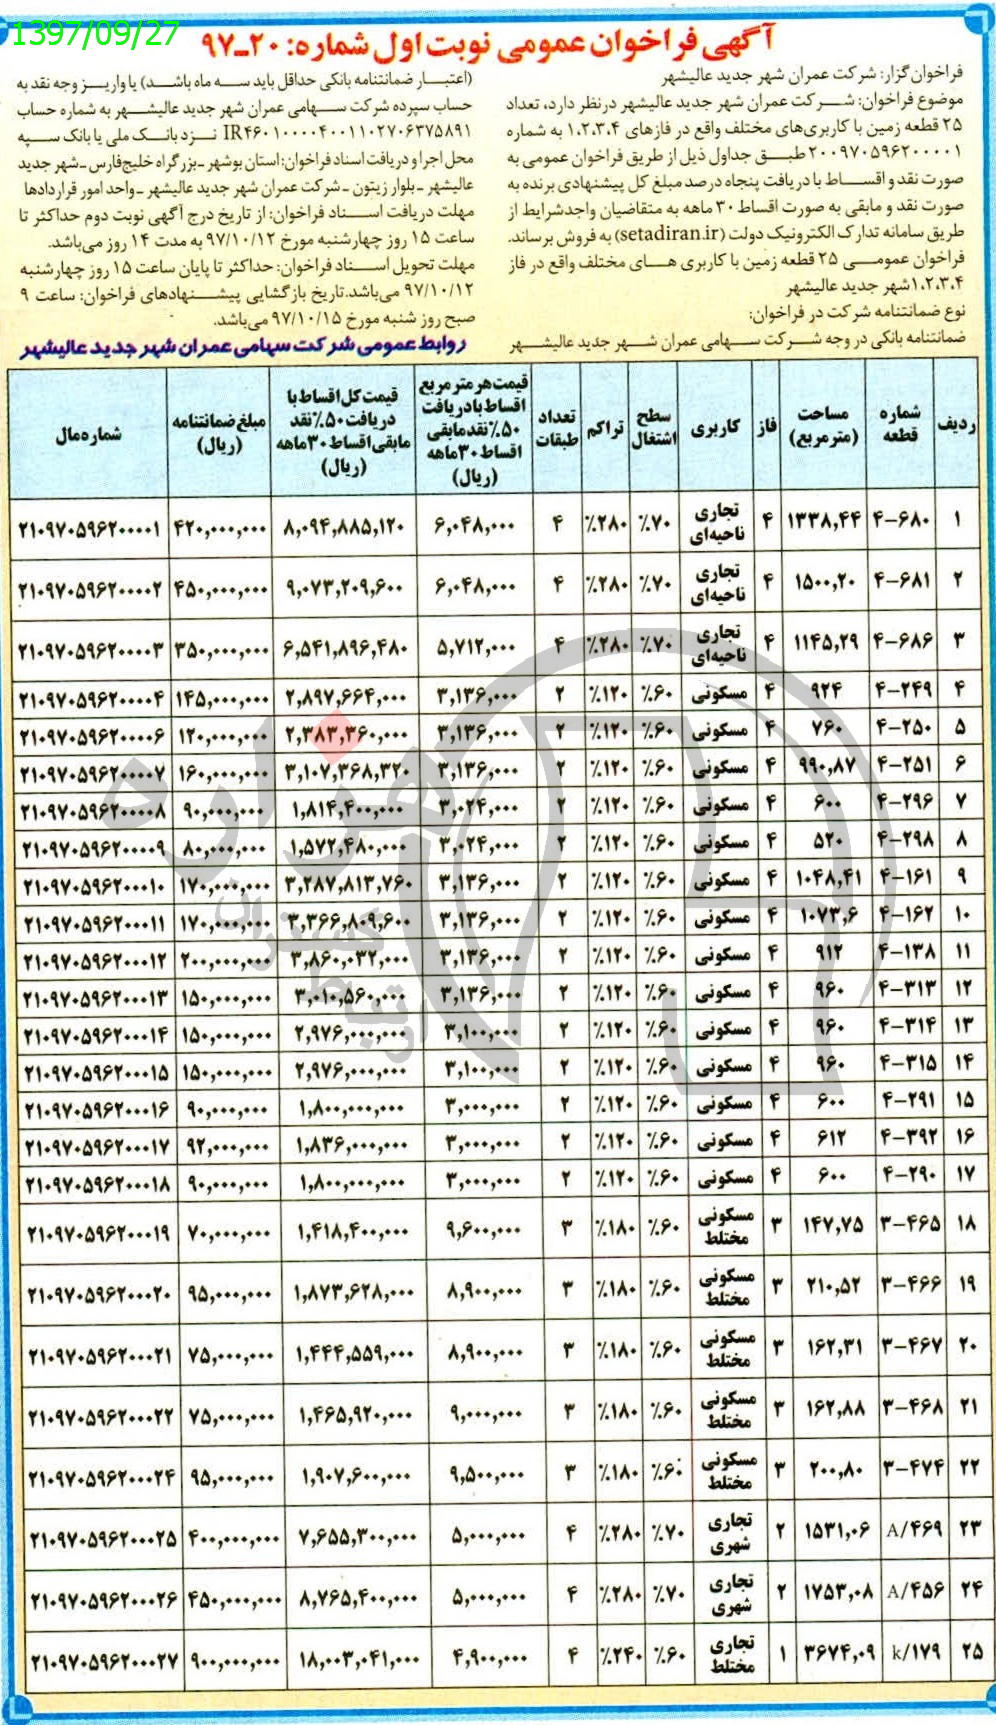 1397/09/27
آگهی فراخوان عمومی نوبت اول شماره: ۲۰-۹۷
فراخوان‌گزار: شرکت عمران شهر جدید عالیشهر
موضوع فراخوان: شرکت عمران شهر جدید عالیشهر درنظر دارد، تعداد
۲۵ قطعه زمین با کاربری‌های مختلف واقع در فازهای ۱،۲،۳،۴ به شماره
۲۰۰۹۷۰۵۹۶۲۰۰۰۰۱ طبق جداول ذیل از طریق فراخوان عمومی به
صورت نقد و اقساط با دریافت پنجاه درصد مبلغ کل پیشنهادی برنده به
صورت نقد و مابقی به صورت اقساط ۳۰ ماهه به متقاضیان واجدشرایط از
طریق سامانه تدارک الکترونیک دولت (setadiran.ir) به فروش برساند.
فراخوان عمومی ۲۵ قطعه زمین با کاربری های مختلف واقع در فاز
۱،۲،۳،۴شهر جدید عالیشهر
نوع ضمانتنامه شرکت در فراخوان:
ضمانتنامه بانکی در وجه شرکت سهامی عمران شهر جدید عالیشهر
(اعتبار ضمانتنامه بانکی حداقل باید سه ماه باشد) یا واریز وجه نقد به
حساب سپرده شرکت سهامی عمران شهر جدید عالیشهر به شماره حساب
IR۴۶۰۱۰۰۰۰۴۰۰۱۱۰۲۷۰۶۳۷۵۸۹۱ نزد بانک ملی یا بانک سپه
محل اجرا و دریافت اسناد فراخوان: استان بوشهر -بزرگراه خلیج‌فارس -شهر جدید
عالیشهر -بلوار زیتون - شرکت عمران شهر جدید عالیشهر -واحد امور قراردادها
مهلت دریافت اسناد فراخوان: از تاریخ درج آگهی نوبت دوم حداکثر تا
ساعت ۱۵ روز چهارشنبه مورخ ۹۷/۱۰/۱۲ به مدت ۱۴ روز می‌باشد.
مهلت تحویل اسناد فراخوان: حداکثر تا پایان ساعت ۱۵ روز چهارشنبه
۹۷/۱۰/۱۲ می‌باشد.تاریخ بازگشایی پیشنهادهای فراخوان: ساعت ۹
صبح روز شنبه مورخ ۹۷/۱۰/۱۵ می‌باشد.
روابط عمومی شرکت سهامی عمران شهر جدید عالیشهر
ردیف شماره قطعه مساحت (مترمربع) فاز کاربری سطح اشتغال تراکم تعداد طبقات قیمت هر متر مربع اقساط با دریافت ۵۰٪ نقد مابقی اقساط ۳۰ ماهه (ریال) قیمت کل اقساط با دریافت ۵۰٪ نقد مابقی اقساط ۳۰ ماهه (ریال) مبلغ ضمانتنامه (ریال) شماره مال
۱ ۴-۶۸۰ ۱۳۳۸,۴۴ ۴ تجاری ناحیه‌ای ٪۷۰ ٪۲۸۰ ۴ ۶,۰۴۸,۰۰۰ ۸,۰۹۴,۸۸۵,۱۲۰ ۴۲۰,۰۰۰,۰۰۰ ۲۱۰۹۷۰۵۹۶۲۰۰۰۰۱
۲ ۴-۶۸۱ ۱۵۰۰,۲۰ ۴ تجاری ناحیه‌ای ٪۷۰ ٪۲۸۰ ۴ ۶,۰۴۸,۰۰۰ ۹,۰۷۳,۲۰۹,۶۰۰ ۴۵۰,۰۰۰,۰۰۰ ۲۱۰۹۷۰۵۹۶۲۰۰۰۰۲
۳ ۴-۶۸۶ ۱۱۴۵,۲۹ ۴ تجاری ناحیه‌ای ٪۷۰ ٪۲۸۰ ۴ ۵,۷۱۲,۰۰۰ ۶,۵۴۱,۸۹۶,۴۸۰ ۳۵۰,۰۰۰,۰۰۰ ۲۱۰۹۷۰۵۹۶۲۰۰۰۰۳
۴ ۴-۲۴۹ ۹۲۴ ۴ مسکونی ٪۶۰ ٪۱۲۰ ۲ ۳,۱۳۶,۰۰۰ ۲,۸۹۷,۶۶۴,۰۰۰ ۱۴۵,۰۰۰,۰۰۰ ۲۱۰۹۷۰۵۹۶۲۰۰۰۰۴
۵ ۴-۲۵۰ ۷۶۰ ۴ مسکونی ٪۶۰ ٪۱۲۰ ۲ ۳,۱۳۶,۰۰۰ ۲,۳۸۳,۳۶۰,۰۰۰ ۱۲۰,۰۰۰,۰۰۰ ۲۱۰۹۷۰۵۹۶۲۰۰۰۰۶
۶ ۴-۲۵۱ ۹۹۰,۸۷ ۴ مسکونی ٪۶۰ ٪۱۲۰ ۲ ۳,۱۳۶,۰۰۰ ۳,۱۰۷,۳۶۸,۳۲۰ ۱۶۰,۰۰۰,۰۰۰ ۲۱۰۹۷۰۵۹۶۲۰۰۰۰۷
۷ ۴-۲۹۶ ۶۰۰ ۴ مسکونی ٪۶۰ ٪۱۲۰ ۲ ۳,۰۲۴,۰۰۰ ۱,۸۱۴,۴۰۰,۰۰۰ ۹۰,۰۰۰,۰۰۰ ۲۱۰۹۷۰۵۹۶۲۰۰۰۰۸
۸ ۴-۲۹۸ ۵۲۰ ۴ مسکونی ٪۶۰ ٪۱۲۰ ۲ ۳,۰۲۴,۰۰۰ ۱,۵۷۲,۴۸۰,۰۰۰ ۸۰,۰۰۰,۰۰۰ ۲۱۰۹۷۰۵۹۶۲۰۰۰۰۹
۹ ۴-۱۶۱ ۱۰۴۸,۴۱ ۴ مسکونی ٪۶۰ ٪۱۲۰ ۲ ۳,۱۳۶,۰۰۰ ۳,۲۸۷,۸۱۳,۷۶۰ ۱۷۰,۰۰۰,۰۰۰ ۲۱۰۹۷۰۵۹۶۲۰۰۰۱۰
۱۰ ۴-۱۶۲ ۱۰۷۳,۶ ۴ مسکونی ٪۶۰ ٪۱۲۰ ۲ ۳,۱۳۶,۰۰۰ ۳,۳۶۶,۸۰۹,۶۰۰ ۱۷۰,۰۰۰,۰۰۰ ۲۱۰۹۷۰۵۹۶۲۰۰۰۱۱
۱۱ ۴-۱۳۸ ۹۱۲ ۴ مسکونی ٪۶۰ ٪۱۲۰ ۲ ۳,۱۳۶,۰۰۰ ۳,۸۶۰,۰۳۲,۰۰۰ ۲۰۰,۰۰۰,۰۰۰ ۲۱۰۹۷۰۵۹۶۲۰۰۰۱۲
۱۲ ۴-۳۱۳ ۹۶۰ ۴ مسکونی ٪۶۰ ٪۱۲۰ ۲ ۳,۱۳۶,۰۰۰ ۳,۰۱۰,۵۶۰,۰۰۰ ۱۵۰,۰۰۰,۰۰۰ ۲۱۰۹۷۰۵۹۶۲۰۰۰۱۳
۱۳ ۴-۳۱۴ ۹۶۰ ۴ مسکونی ٪۶۰ ٪۱۲۰ ۲ ۳,۱۰۰,۰۰۰ ۲,۹۷۶,۰۰۰,۰۰۰ ۱۵۰,۰۰۰,۰۰۰ ۲۱۰۹۷۰۵۹۶۲۰۰۰۱۴
۱۴ ۴-۳۱۵ ۹۶۰ ۴ مسکونی ٪۶۰ ٪۱۲۰ ۲ ۳,۱۰۰,۰۰۰ ۲,۹۷۶,۰۰۰,۰۰۰ ۱۵۰,۰۰۰,۰۰۰ ۲۱۰۹۷۰۵۹۶۲۰۰۰۱۵
۱۵ ۴-۲۹۱ ۶۰۰ ۴ مسکونی ٪۶۰ ٪۱۲۰ ۲ ۳,۰۰۰,۰۰۰ ۱,۸۰۰,۰۰۰,۰۰۰ ۹۰,۰۰۰,۰۰۰ ۲۱۰۹۷۰۵۹۶۲۰۰۰۱۶
۱۶ ۴-۳۹۲ ۶۱۲ ۴ مسکونی ٪۶۰ ٪۱۲۰ ۲ ۳,۰۰۰,۰۰۰ ۱,۸۳۶,۰۰۰,۰۰۰ ۹۲,۰۰۰,۰۰۰ ۲۱۰۹۷۰۵۹۶۲۰۰۰۱۷
۱۷ ۴-۲۹۰ ۶۰۰ ۴ مسکونی ٪۶۰ ٪۱۲۰ ۲ ۳,۰۰۰,۰۰۰ ۱,۸۰۰,۰۰۰,۰۰۰ ۹۰,۰۰۰,۰۰۰ ۲۱۰۹۷۰۵۹۶۲۰۰۰۱۸
۱۸ ۳-۴۶۵ ۱۴۷,۷۵ ۳ مسکونی مختلط ٪۶۰ ٪۱۸۰ ۳ ۹,۶۰۰,۰۰۰ ۱,۴۱۸,۴۰۰,۰۰۰ ۷۰,۰۰۰,۰۰۰ ۲۱۰۹۷۰۵۹۶۲۰۰۰۱۹
۱۹ ۳-۴۶۶ ۲۱۰,۵۲ ۳ مسکونی مختلط ٪۶۰ ٪۱۸۰ ۳ ۸,۹۰۰,۰۰۰ ۱,۸۷۳,۶۲۸,۰۰۰ ۹۵,۰۰۰,۰۰۰ ۲۱۰۹۷۰۵۹۶۲۰۰۰۲۰
۲۰ ۳-۴۶۷ ۱۶۲,۳۱ ۳ مسکونی مختلط ٪۶۰ ٪۱۸۰ ۳ ۸,۹۰۰,۰۰۰ ۱,۴۴۴,۵۵۹,۰۰۰ ۷۵,۰۰۰,۰۰۰ ۲۱۰۹۷۰۵۹۶۲۰۰۰۲۱
۲۱ ۳-۴۶۸ ۱۶۲,۸۸ ۳ مسکونی مختلط ٪۶۰ ٪۱۸۰ ۳ ۹,۰۰۰,۰۰۰ ۱,۴۶۵,۹۲۰,۰۰۰ ۷۵,۰۰۰,۰۰۰ ۲۱۰۹۷۰۵۹۶۲۰۰۰۲۲
۲۲ ۳-۴۷۴ ۲۰۰,۸۰ ۳ مسکونی مختلط ٪۶۰ ٪۱۸۰ ۳ ۹,۵۰۰,۰۰۰ ۱,۹۰۷,۶۰۰,۰۰۰ ۹۵,۰۰۰,۰۰۰ ۲۱۰۹۷۰۵۹۶۲۰۰۰۲۴
۲۳ A/۴۶۹ ۱۵۳۱,۰۶ ۲ تجاری شهری ٪۷۰ ٪۲۸۰ ۴ ۵,۰۰۰,۰۰۰ ۷,۶۵۵,۳۰۰,۰۰۰ ۴۰۰,۰۰۰,۰۰۰ ۲۱۰۹۷۰۵۹۶۲۰۰۰۲۵
۲۴ A/۴۵۶ ۱۷۵۳,۰۸ ۲ تجاری شهری ٪۷۰ ٪۲۸۰ ۴ ۵,۰۰۰,۰۰۰ ۸,۷۶۵,۴۰۰,۰۰۰ ۴۵۰,۰۰۰,۰۰۰ ۲۱۰۹۷۰۵۹۶۲۰۰۰۲۶
۲۵ k/۱۷۹ ۳۶۷۴,۰۹ ۱ تجاری مختلط ٪۶۰ ٪۲۴۰ ۴ ۴,۹۰۰,۰۰۰ ۱۸,۰۰۳,۰۴۱,۰۰۰ ۹۰۰,۰۰۰,۰۰۰ ۲۱۰۹۷۰۵۹۶۲۰۰۰۲۷